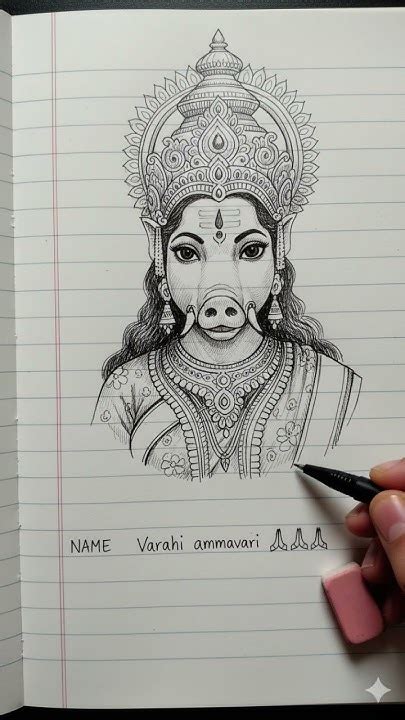 NAME Varahi ammavari 🙏🙏🙏